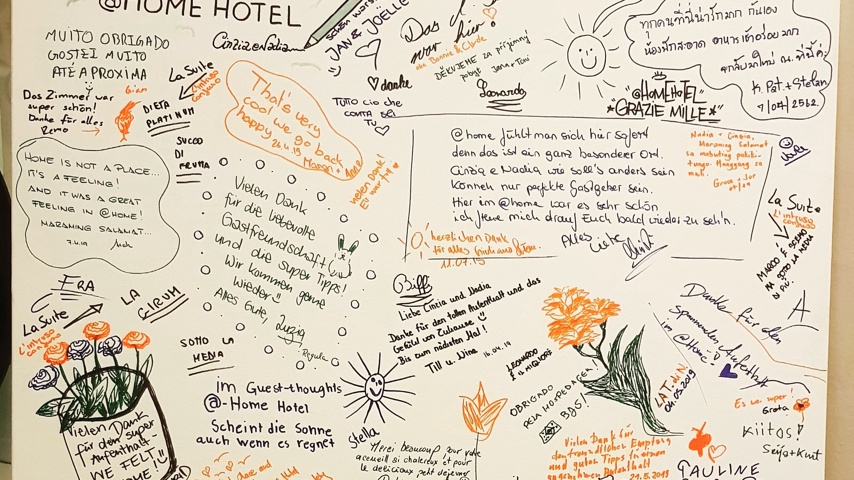 @HOME HOTEL
MUITO OBRIGADO
GOSTEI MUITO
ATÉ A PROXIMA
Cinzia e Nadia
JANE JOELLE
Das
war hier!
aka Bonnie & Clyde
DĚKUJEME ZA PŘÍJEMNÝ
pobyt Jana + Toni
Leonardo
danke
TUTTO CIO CHE
CONTA SEI
TU
ทุกคนที่นี่น่ารักมาก กันเอง
ห้องพักสะอาด อาหารเช้าอร่อยมาก
K. Pat + Stefan
7/04/2562
@HOMEHOTEL
GRAZIE MILLE
Das Zimmer war
super schön!
Danke für alles
Remo
La Suite
L'intruso
confuso
DIETA
PLATINUM
SUCCO
DI
FRUTTA
That's very
cool we go back
happy
24.4.19
Vielen Dank!
Es war toll
HOME IS NOT A PLACE...
IT'S A FEELING!
AND IT WAS A GREAT
FEELING IN @HOME!
MARAMING SALAMAT...
7.4.19
Vielen Dank
für die liebevolle
Gastfreundschaft
und die super Tipps!
Wir kommen gerne
wieder!!
Alles Gute,
Regula
@home fühlt man sich hier sofort
denn das ist ein ganz besonderer Ort.
Cinzia e Nadia wie soll's anders sein
können nur perfekte Gastgeber sein.
Hier im @home war es sehr schön
ich freue mich drauf Euch bald wieder zu seh'n.
Alles Liebe
Nadia + Cinzia,
Maraming Salamat
sa mabuting pakiki-
tungo. Hanggang sa
muli.
herzlichen Dank
für alles
11.07.19
La Suite
L'intruso
confuso
MARCO È SCEMO
MA SOTTO LA MEDIA
DI PIÙ
FRA
LA
CIRUM
La Suite
L'intruso
confuso
SOTTO LA
MEDIA
Biffi
Liebe Cinzia und Nadia
Danke für den tollen Aufenthalt und das
Gefühl von Zuhause
Bis zum nächsten Mal!
Till u. Nina 16.04.19
LEONARDO
È IL MIGLIORE
OBRIGADO
PELA HOSPEDAGEM
BDS!
Danke für den
Spannenden Aufenthalt
im @Home
A
LAT
04.05.2019
Es war super!
Greta
Kiitos!
Seija + Kurt
Vielen Dank
für den super
Aufenthalt-
WE FELT
HOME!
im Guest-thoughts
@-Home Hotel
Scheint die Sonne
auch wenn es regnet
Stella
Merci beaucoup pour votre
accueil si chaleureux et pour
le délicieux petit déjeuner
Vielen Dank für
den freundlichen Empfang
und guten Tipps für einen
angenehmen Aufenthalt
21.5.2019
PAULINE